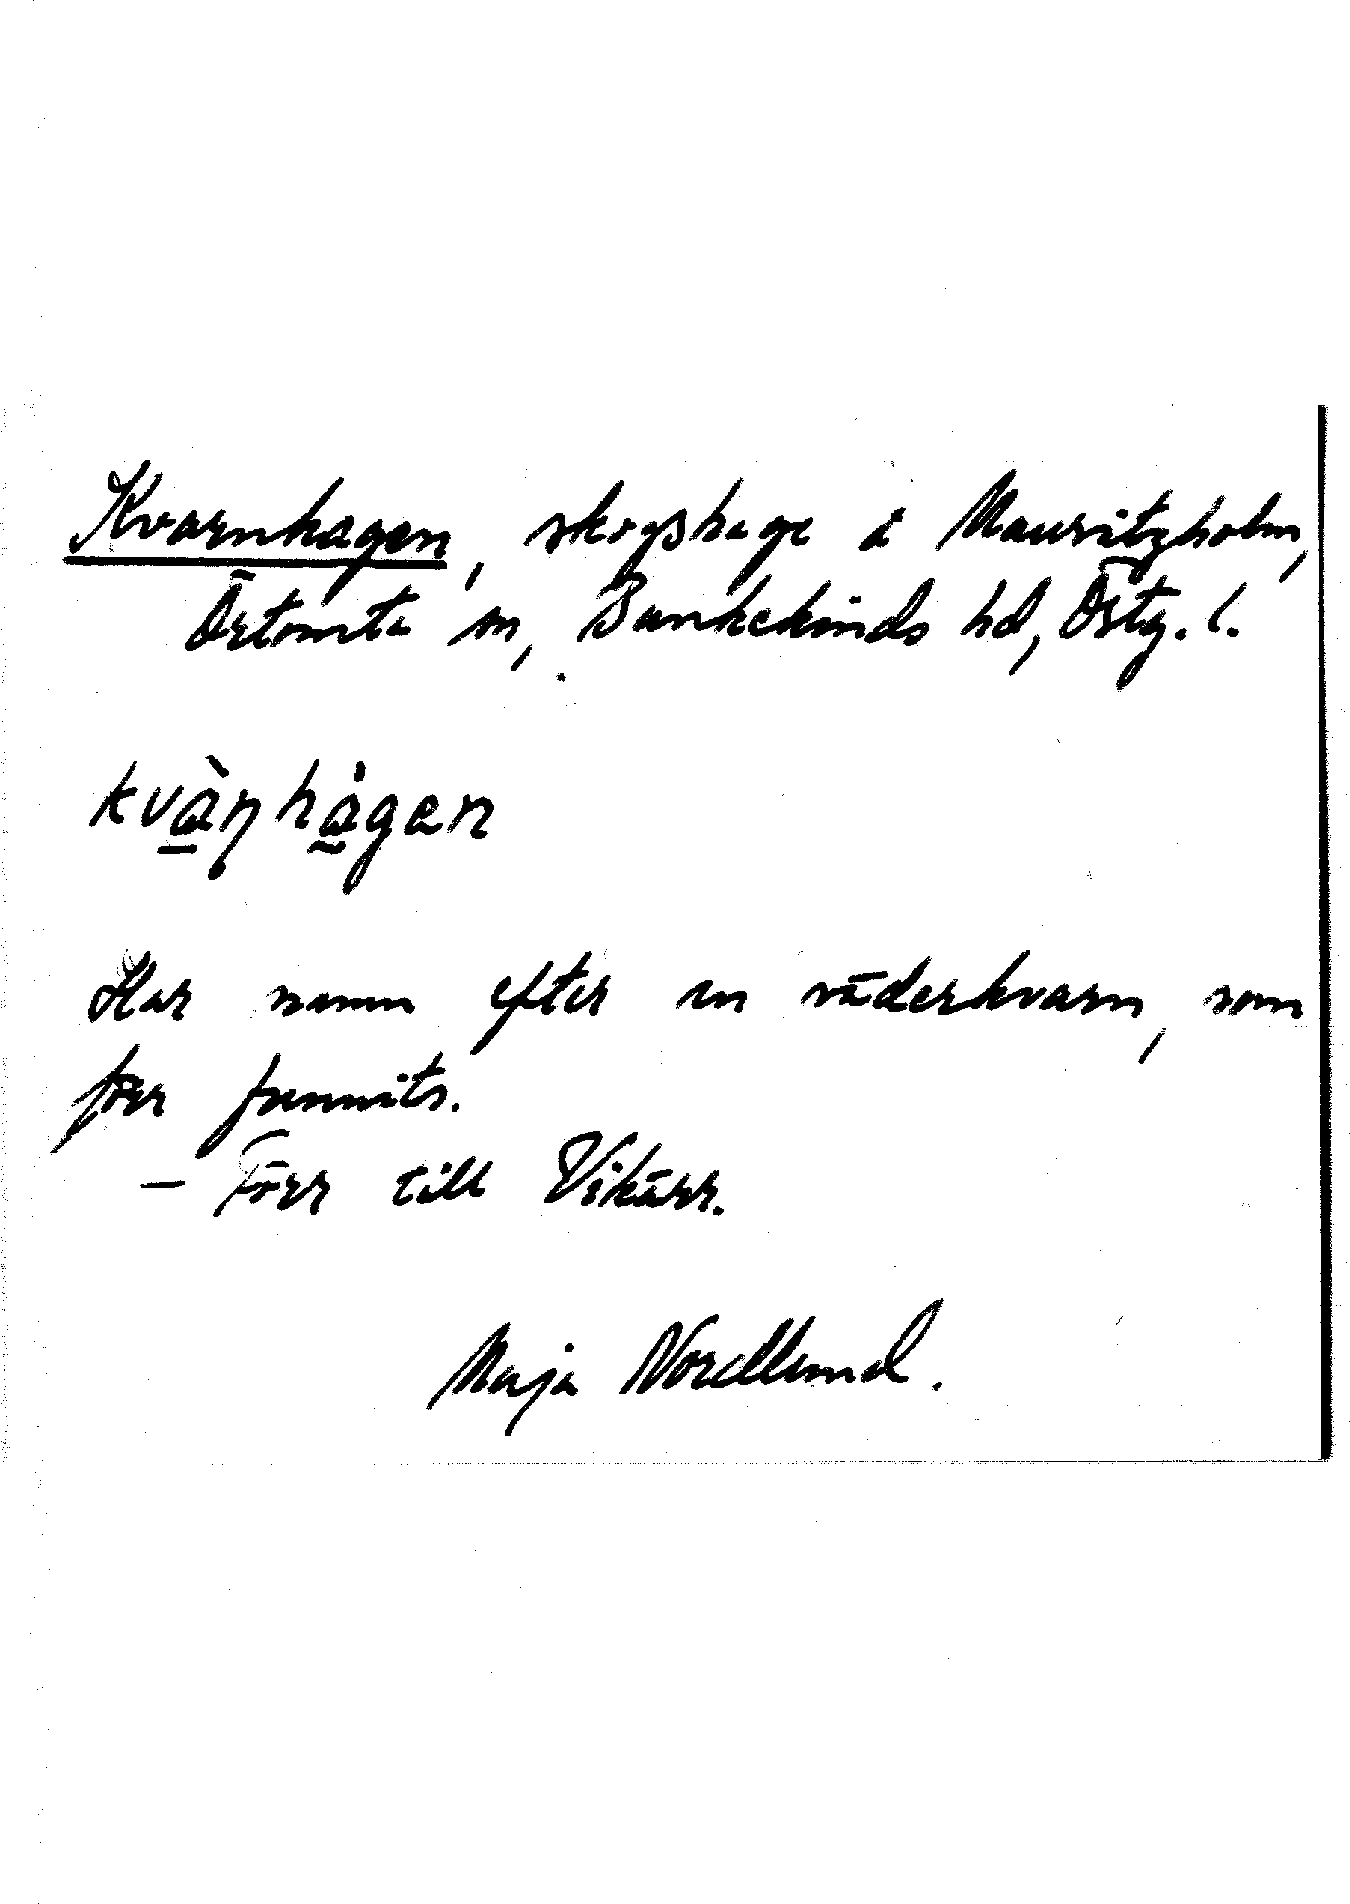 Kvarnhagen, skogshage å Mauritzholm,
Örtomta sn, Bankekinds hd, Östg. l.
kvàṇhågen
Har namn efter en väderkvarn, som
förr funnits.
– Förr till Vikärr.
Maja Nordlund.